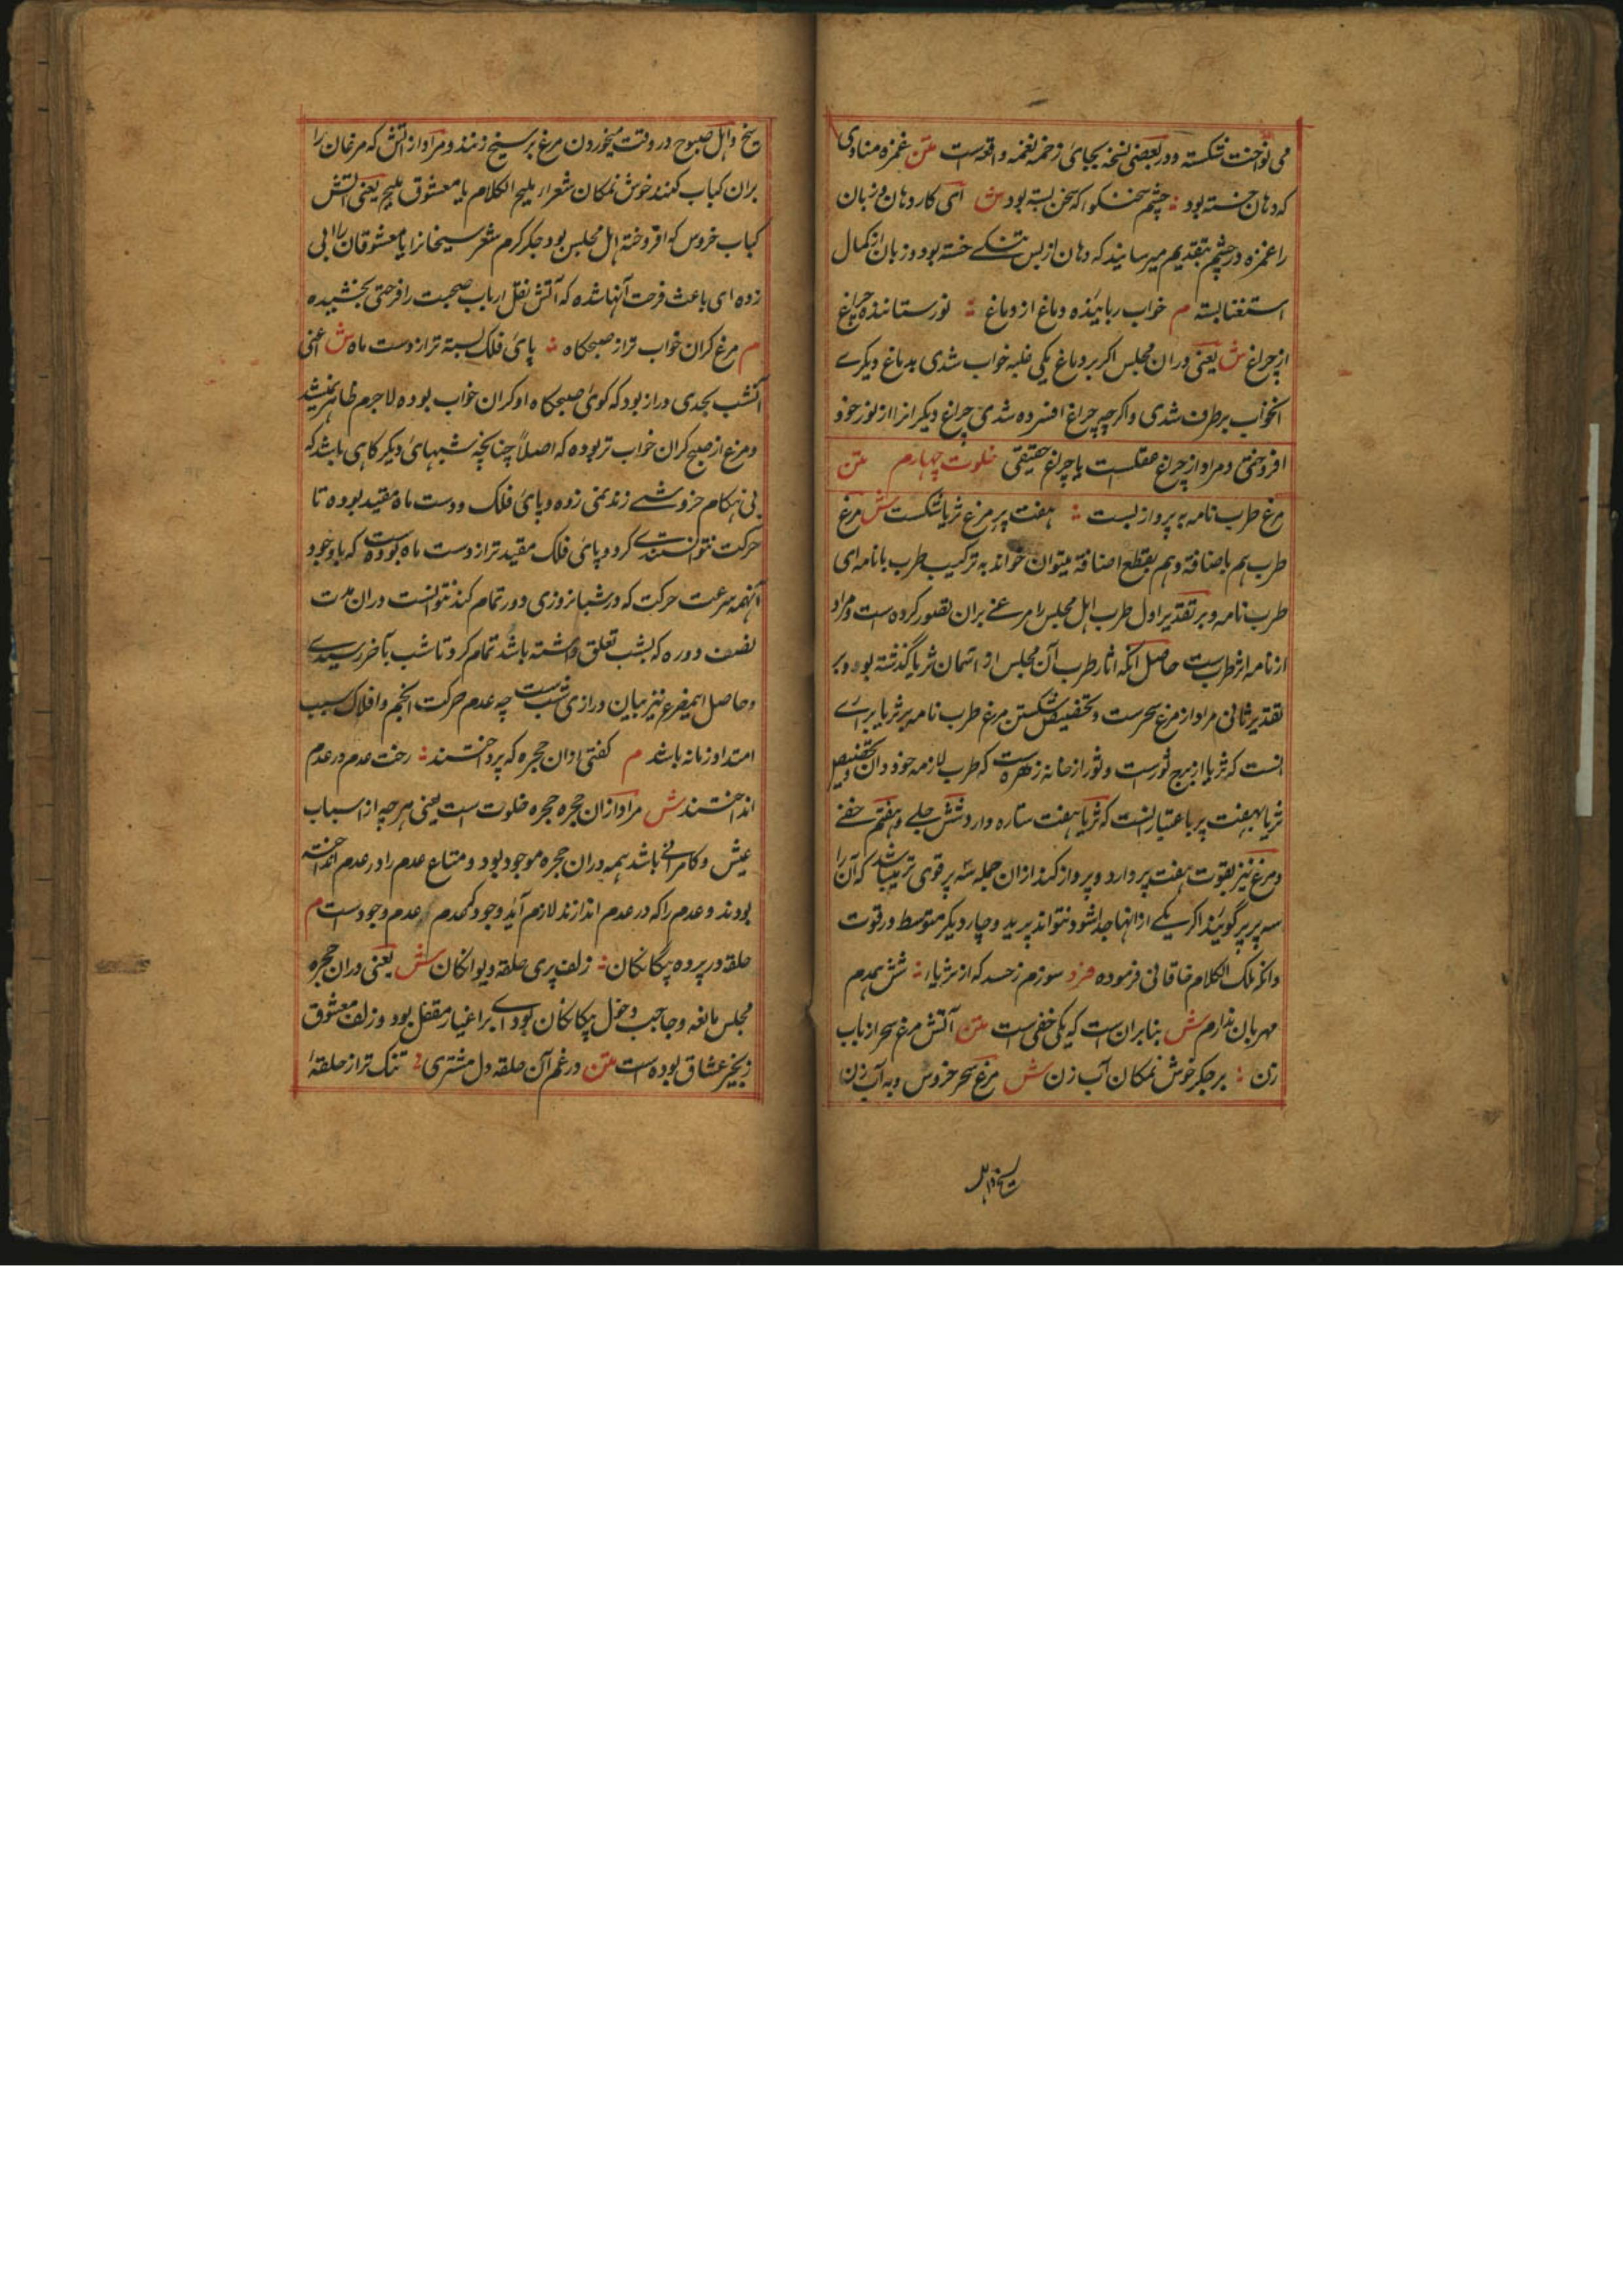 می نواخت شکسته و در بعضی نسخه بجای زخمه نغمه واقع است متن غمزه منادی
که دهان خسته بود چشم سخنگو که سخن بسته بود ش ای کار دهان و زبان
را غمزه و چشم بتقدیم میرسانیدند که دهان از بس تنگی خسته بود و زبان از کمال
استغنا بسته م خواب رباینده دماغ از دماغ نور ستاننده چراغ
از چراغ ش یعنی در ان مجلس اگر بر دماغ یکی غلبه خواب شدی بدماغ دیگرے
آنخواب برطرف شدی و اگر چه چراغ افسرده شدی چراغ دیگر انرا از نور خود
افروختی و مراد از چراغ عقلست یا چراغ حقیقی خلوت چهارم متن
مرغ طرب نامه به پرواز بست هفت پر مرغ ثریا شکست ش مرغ
طرب هم باضافة و هم بقطع اضافة میتوان خواند به ترکیب طرب با نامه ای
طرب نامه و بر تقدیر اول طرب اهل مجلس را مرغے بران تصور کرده است و مراد
از نامه اثر طربست حاصل آنکه اثار طرب آن مجلس از آسمان ثریا گذشته بود و بر
تقدیر ثانی مراد از مرغ سحرست و تخصیص شکستن مرغ طرب نامه پر ثریا برائے
انست که ثریا از برج ثورست و ثور از خانه زهره است که طرب لازمه خود دان و تخصیص
ثریا بهفت پر باعتبار انست که ثریا هفت ستاره دارد شش جلے و هفتم خفے
و مرغ نیز بقوت هفت پر دارد و پرواز کند ازان جمله سه پر قوی تر میباشد که آن را
سه پر پر گویند اگر یکے از انها جدا شود نتواند پرید و چار دیگر متوسط در قوت
و انکه ملک الکلام خاقانی فرموده فرد سوزم ز حسد که از ثریا شش همدم
مهربان ندارم ش بنا بران ست که یکی خفی است متن آتش مرغ سحر از باب
زن بر جگر خوش نمکان آب زن ش مرغ سحر خروس و به آب زن
سیخ و اهل
سیخ و اهل صبوح در وقت میخوردن مرغ بر سیخ زنند و مراد از آتش که مرغان را
بران کباب کنند خوش نمکان شعراء ملیح الکلام یا معشوق ملیح یعنی آتش
کباب خروس که افروخته اهل مجلس بود جگر گرم شعر سیخانرا یا معشوقان را ابی
زده ای باعث فرحت آنها شده که آتش نقل ارباب صحبت را فرحتی بخشیده
م مرغ گران خواب تر از صبحگاه پای فلک بسته تر از دست ماه ش اعنی
آنشب بحدی دراز بود که گوئ صبحگاه او گران خواب بوده لاجرم ظاهر نمیشد
و مرغ از صبح گران خواب تر بوده که اصلاً چنانچه شبهای دیگر گاهی باشد که
بی هنگام خروشے زند نمی زده و پای فلک و دست ماه مقید بوده تا
حرکت نتوانستندے کرد و پای فلک مقید تر از دست ماه بوده است که با وجود
آنهمه سرعت حرکت که در شبانروزی دور تمام کند نتوانست دران مدت
نصف دوره که بشب تعلق داشته باشد تمام کرد تا شب بآخر رسیدے
و حاصل اینمصرع نیز بیان درازی شب است چه عدم حرکت انجم و افلاک سبب
امتداد زمانه باشد م گفتی ازان حجره که پرداختند رخت عدم در عدم
انداختند ش مراد ازان حجره حجره خلوت است یعنی هر چه از اسباب
عیش و کامرانے باشد همه دران حجره موجود بود و متاع عدم را در عدم انداخته
بودند و عدم را که در عدم اندازند لازم آید وجود که عدم عدم وجود است م
حلقه در پرده بیگانگان زلف پری حلقه دیوانگان ش یعنی دران حجره
مجلس مانعه و حاجب دخول بیگانگان بود اے بر اغیار مقفل بود و زلف معشوق
زنجیر عشاق بوده است متن در غم آن حلقه دل مشتری تنگ تر از حلقۀ